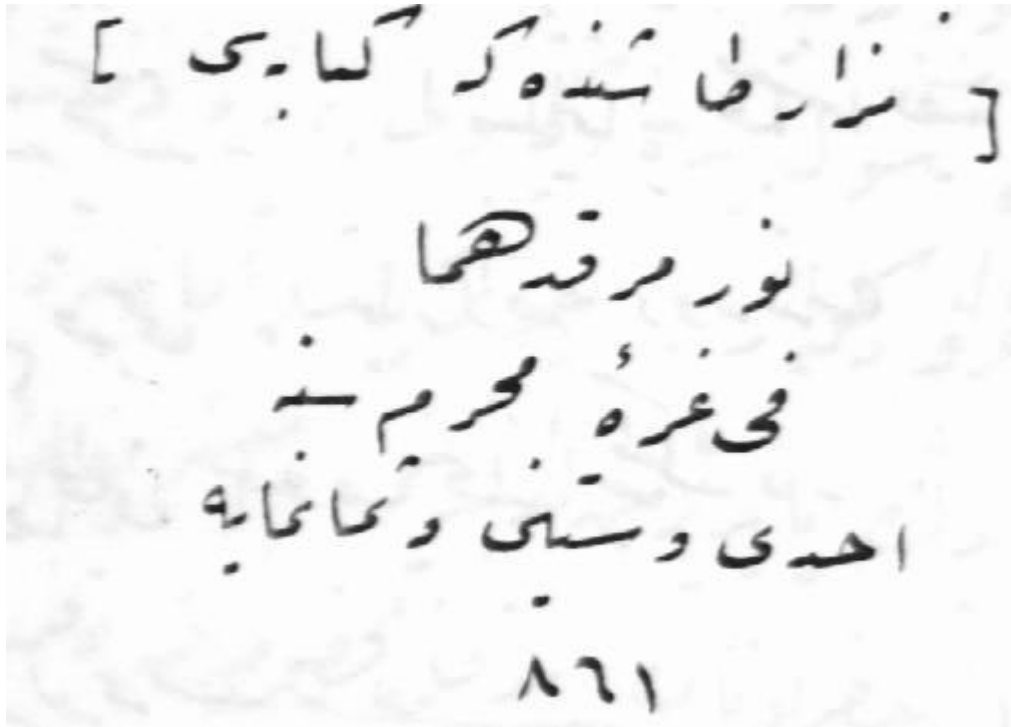 [ مزار طاشنده كی كتابه سی ]
نور مرقدهما
فی غرهٔ محرم سنه
احدی وستین وثمانمایه
٨٦١